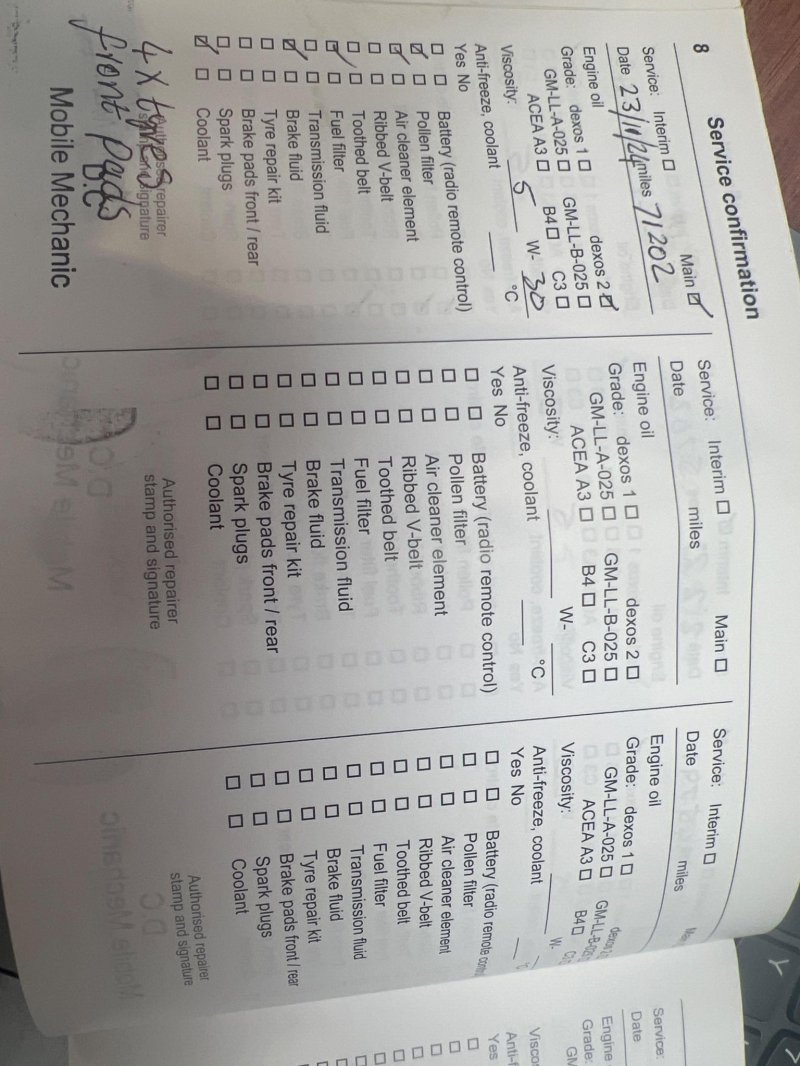 8 Service confirmation
Service: Interim ☐ Main ☑
Date 23/11/24 miles 71202
Engine oil
Grade: dexos 1 ☐ dexos 2 ☑
GM-LL-A-025 ☐ GM-LL-B-025 ☐
ACEA A3 ☐ B4 ☐ C3 ☐
Viscosity: 5 W- 30
Anti-freeze, coolant °C
Yes No
☐ ☐ Battery (radio remote control)
☑ ☐ Pollen filter
☑ ☐ Air cleaner element
☐ ☐ Ribbed V-belt
☐ ☐ Toothed belt
☑ ☐ Fuel filter
☐ ☐ Transmission fluid
☑ ☐ Brake fluid
☐ ☐ Tyre repair kit
☐ ☐ Brake pads front / rear
☐ ☐ Spark plugs
☑ ☐ Coolant
4 x tyres
front pads
D.C
Mobile Mechanic
Service: Interim ☐ Main ☐
Date miles
Engine oil
Grade: dexos 1 ☐ dexos 2 ☐
GM-LL-A-025 ☐ GM-LL-B-025 ☐
ACEA A3 ☐ B4 ☐ C3 ☐
Viscosity: W-
Anti-freeze, coolant °C
Yes No
☐ ☐ Battery (radio remote control)
☐ ☐ Pollen filter
☐ ☐ Air cleaner element
☐ ☐ Ribbed V-belt
☐ ☐ Toothed belt
☐ ☐ Fuel filter
☐ ☐ Transmission fluid
☐ ☐ Brake fluid
☐ ☐ Tyre repair kit
☐ ☐ Brake pads front / rear
☐ ☐ Spark plugs
☐ ☐ Coolant
Authorised repairer
stamp and signature
Service: Interim ☐
Date miles
Engine oil
Grade: dexos 1 ☐ dexos
GM-LL-A-025 ☐ GM-LL-B-025
ACEA A3 ☐ B4 ☐
Viscosity: W-
Anti-freeze, coolant
Yes No
☐ ☐ Battery (radio remote
☐ ☐ Pollen filter
☐ ☐ Air cleaner element
☐ ☐ Ribbed V-belt
☐ ☐ Toothed belt
☐ ☐ Fuel filter
☐ ☐ Transmission fluid
☐ ☐ Brake fluid
☐ ☐ Tyre repair kit
☐ ☐ Brake pads front / rear
☐ ☐ Spark plugs
☐ ☐ Coolant
Authorised repairer
stamp and signature
Service:
Date
Engine
Grade:
GM
Yes